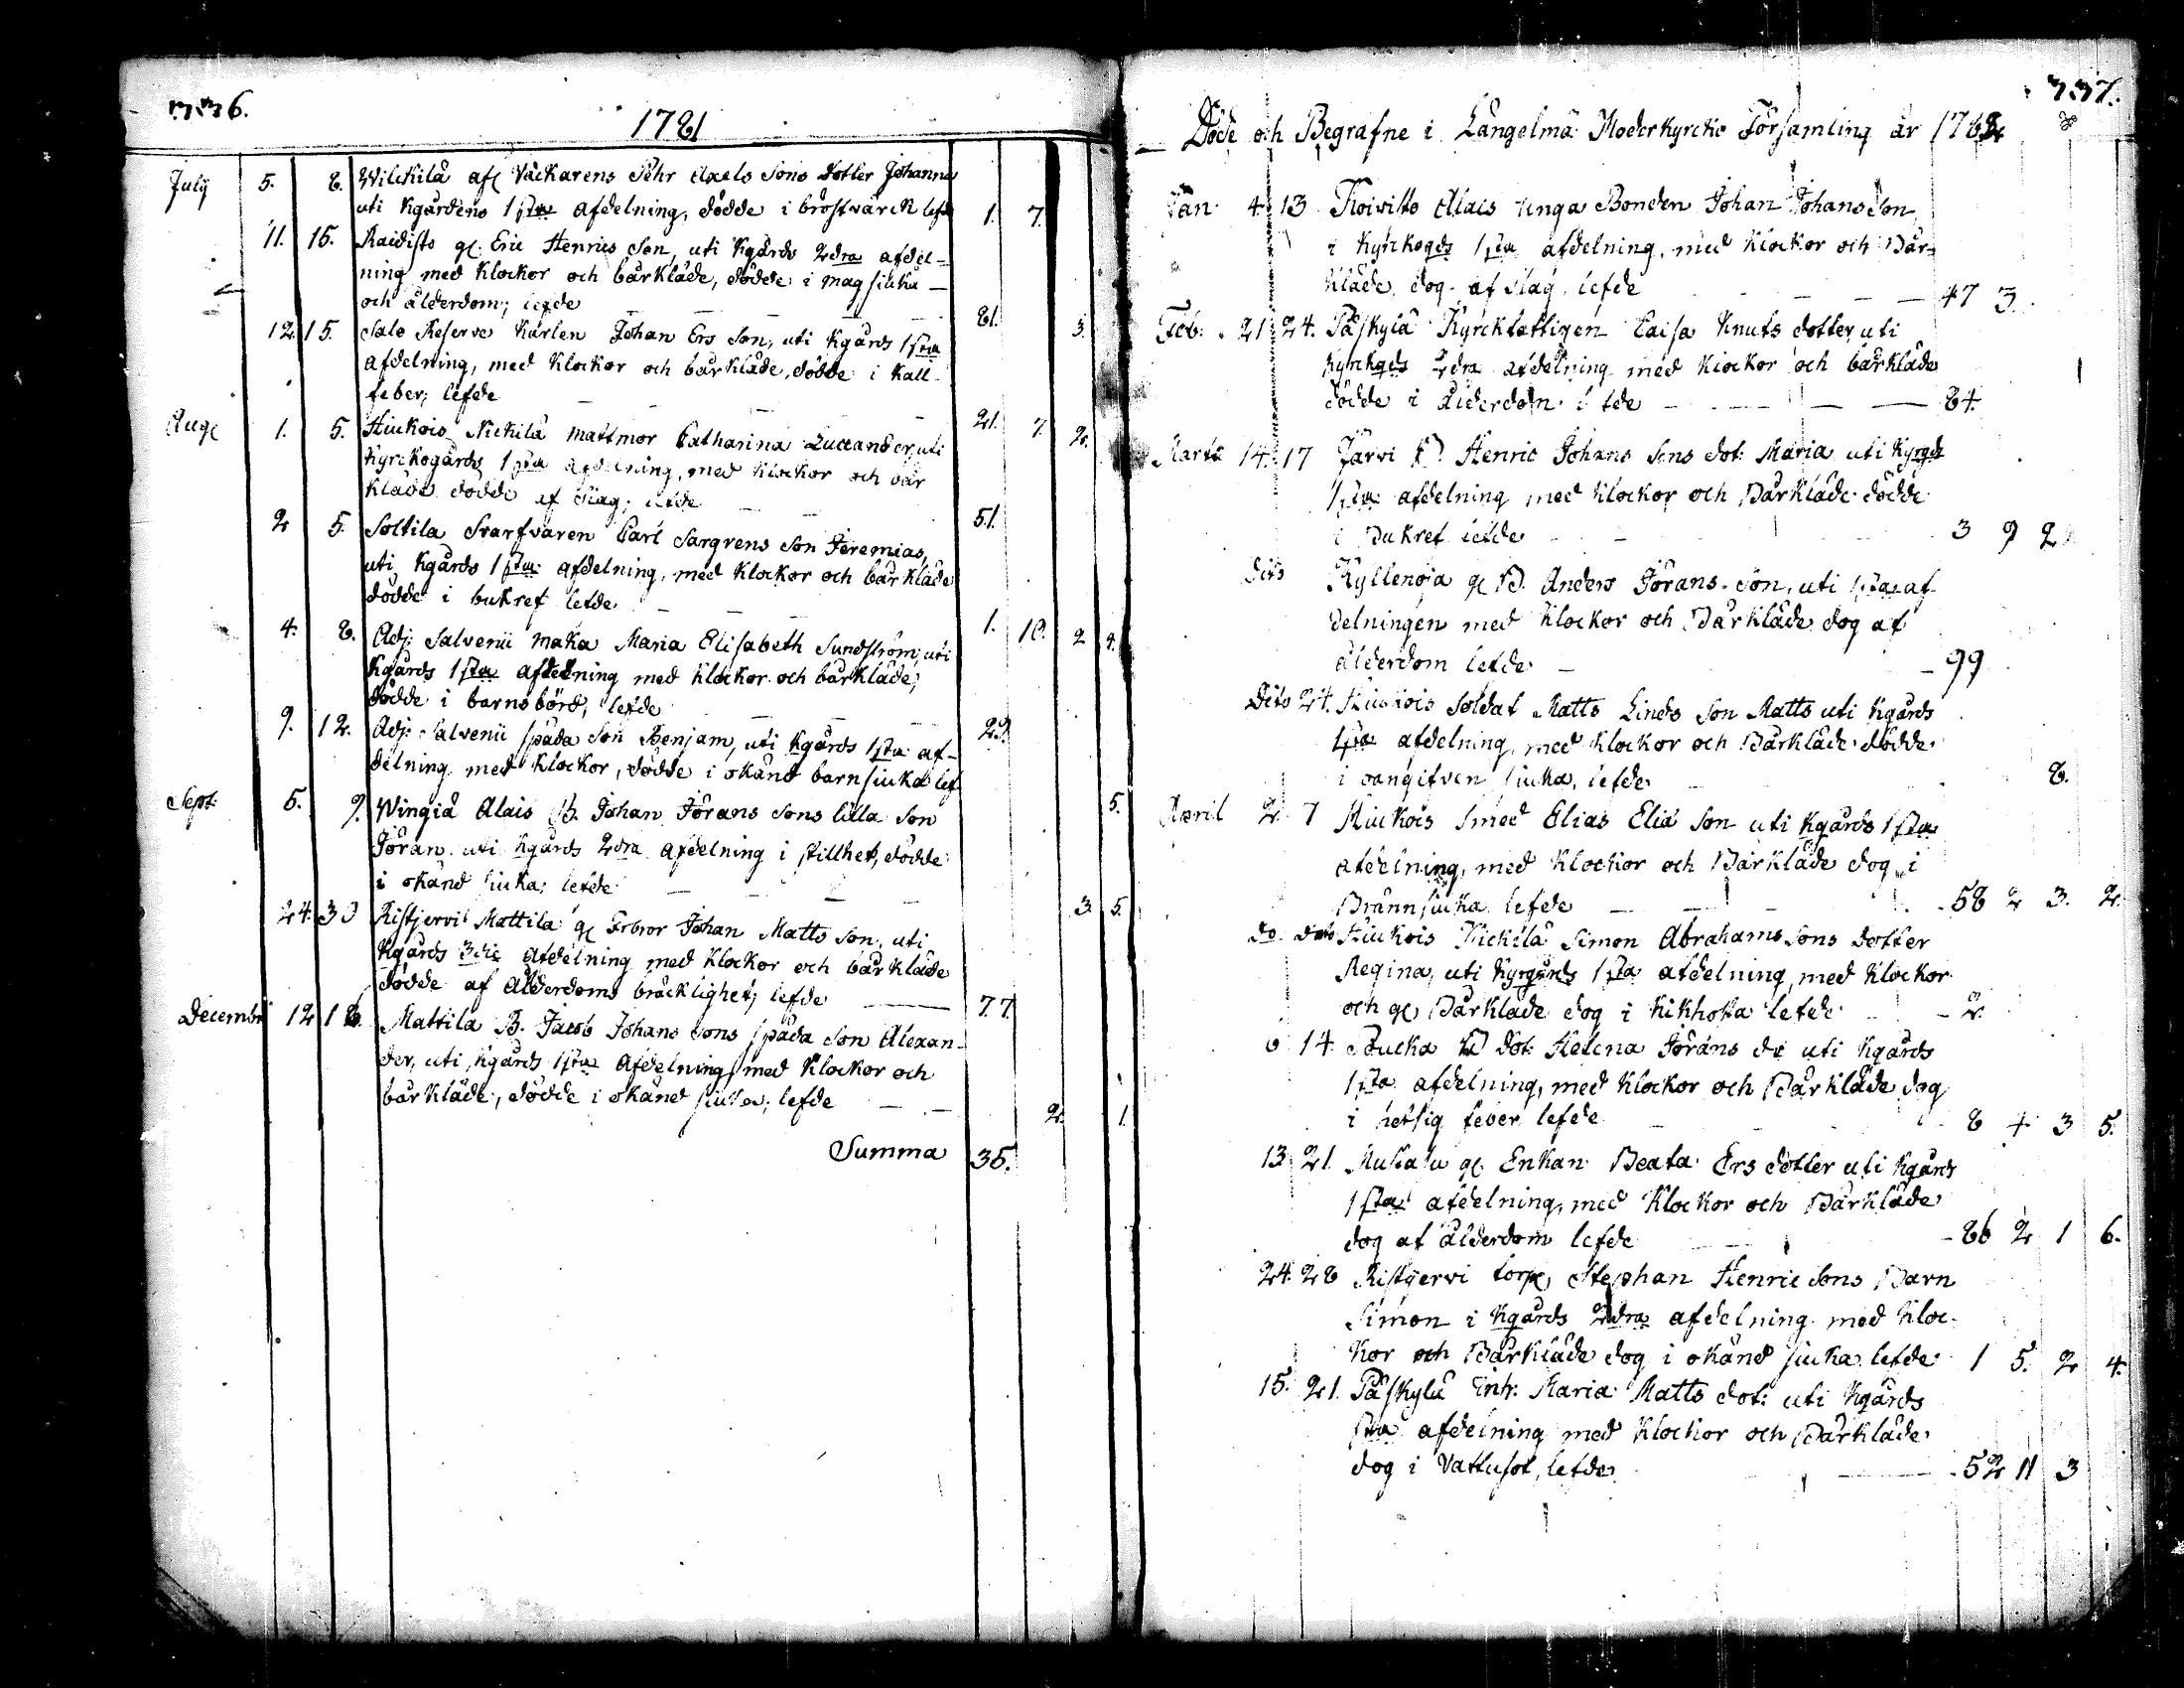 336.
1781
July 5. 8. Wilckilä afl Vackarens Pehr Axels Sons dotter Johanna
uti Kgårdens 1sta afdelning, dödde i bröstvärck lefde 1. 7.
11. 15. Raidisto gl. Eric Henrics Son, uti Kgårds 2dra afdel-
ning med Klockor och bårkläde, dödde i magsiuka
och ålderdom; lefde 81. 3.
12. 15. Salo Reserve Karlen Johan Ers Son, uti Kgårds 1sta
afdelning, med Klockor och bårkläde, dödde i kall
feber; lefde 21. 7. 2.
Aug 1. 5. Hiukois Nickilä mattmor Catharina Lucander, uti
Kyrckogårds 1sta afdelning, med Klockor och bår
kläde dödde af slag; lefde 51.
2 5. Soltila Svarfvaren Carl Sargrens Son Jeremias,
uti Kgårds 1sta afdelning, med Klockor och bårkläde
dödde i bukref lefde 1. 10. 2 4.
4. 8. Adj: Salvenii maka Maria Elisabeth Sundström, uti
Kgårds 1sta afdelning med Klockor och bårkläde,
dödde i barnsbörd, lefde 29.
9. 12. Adj: Salvenii späda Son Benjam, uti Kgårds 1sta af-
delning med Klockor, dödde i okänd barnsiuka lef 5.
Sept: 5. 9. Wingiä Alais B. Johan Jörans Sons lilla Son
Jöran uti Kgårds 2dra afdelning i stillhet, dödde
i okänd siuka; lefde 3. 5.
24. 30 Ristjervi Mattila gl Johan Matts Son, uti
Kgårds 3die afdelning med Klockor och bårkläde
dödde af Ålderdoms bräcklighet; lefde 77
Decembr 12 18. Mattila B. Jacob Johans Sons späda Son Alexan-
der, uti Kgårds 1sta afdelning med Klockor och
bårkläde, dödde i okänd siuka; lefde 2. 1.
Summa 35.
337.
Döde och Begrafne i Längelmä Moderkyrckio Församling år
Jan 4. 13 Koivisto Alais unga Bonden Johan Johans Son
i Kyrckogds 1sta afdelning, med Klockor och Bår-
kläde dog af slag lefde 47 3.
Feb: 21 24. Påskylä Kyrckfattigen Caisa Knuts dotter, uti
Kyrckgds 2dra afdelning med Klockor och bårkläde
dödde i ålderdom 84.
Martii 14. 17 Järvi Henric Johans Sons dot: Maria uti Kyrgds
1sta afdelning med Klockor och Bårkläde dödde
i Bukref lefde 3 9 2
Dito Kyllenoja gl B. Anders Jörans Son, uti 1sta af
delningen med Klockor och Bårkläde dog af
ålderdom lefde 99
Dito 24. Hiukois Soldat Matts Linds Son Matts uti Kgårds
1sta afdelning, med Klockor och Bårkläde dödde
i oangifven siuka, lefde 8.
April 2 7 Hiukois Smed Elias Eliæ Son uti Kgårds 1sta
afdelning, med Klockor och Bårkläde dog i
Brännsiuka lefde 58 2 3. 2.
do dito Hiukois Nickilä Simon Abrahams Sons dotter
Regina, uti Kyrgårds 1sta afdelning, med Klockor
och gl Bårkläde dog i Kikhosta lefde 2.
14. Poucka dot: Helena Jörans uti Kgårds
1sta afdelning, med Klockor och Bårkläde dog
i hetsig feber lefde 8 4 3 5.
13 21. gl. Enkan Beata Ers dotter uti Kgårds
1sta afdelning, med Klockor och Bårkläde
dog af ålderdom lefde 86 2 1 6.
24. 28 Ristjervi torp Stephan Henric Sons Barn
Simon i Kgårds 2dra afdelning med Kloc-
kor och Bårkläde dog i okänd siuka lefde 1 5. 2 4.
15. 21. Påskylä Maria Matts dot: uti Kgårds
1sta afdelning med Klockor och Bårkläde
dog i Vattusot, lefde 52 11 3